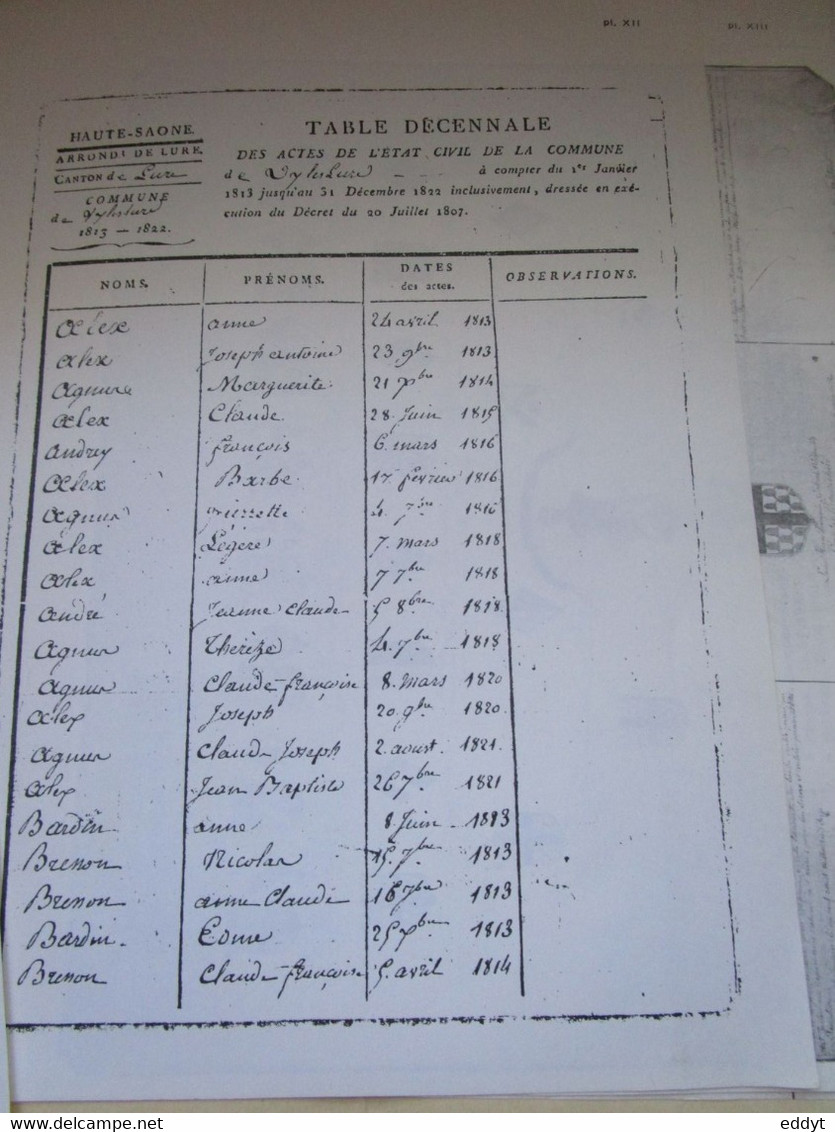 pl. XII
pl. XIII
HAUTE-SAONE.
ARRONDt DE LURE.
CANTON de Lure
COMMUNE
de Vylslure
1813 — 1822.
TABLE DÉCENNALE
DES ACTES DE L'ÉTAT CIVIL DE LA COMMUNE
de Vyleslure - - - à compter du 1er Janvier
1813 jusqu'au 31 Décembre 1822 inclusivement, dressée en exé-
cution du Décret du 20 Juillet 1807.
NOMS. PRÉNOMS. DATES des actes. OBSERVATIONS.
alex anne 24 avril 1813
alex Joseph antoine 23 9bre 1813
agnus Marguerite 21 Xbre 1814
alex Claude 28 Juin 1815
andrey françois 6 mars 1816
alex Barbe 17 fevrier 1816
agnus pierrette 4 7bre 1816
alex Légere 7 mars 1818
alex anne 7 7bre 1818
andré Jeanne Claude 5 8bre 1818
agnus Thérèze 4 7bre 1818
agnus Claude françoise 8 mars 1820
alex Joseph 20 9bre 1820
agnus Claude Joseph 2 aoust 1821
alex Jean Baptiste 26 7bre 1821
Bardin anne 8 Juin 1813
Bresson Nicolas 15 7bre 1813
Bresson anne Claude 16 7bre 1813
Bardin Edme 25 Xbre 1813
Bresson Claude françoise 5 avril 1814
eddyt